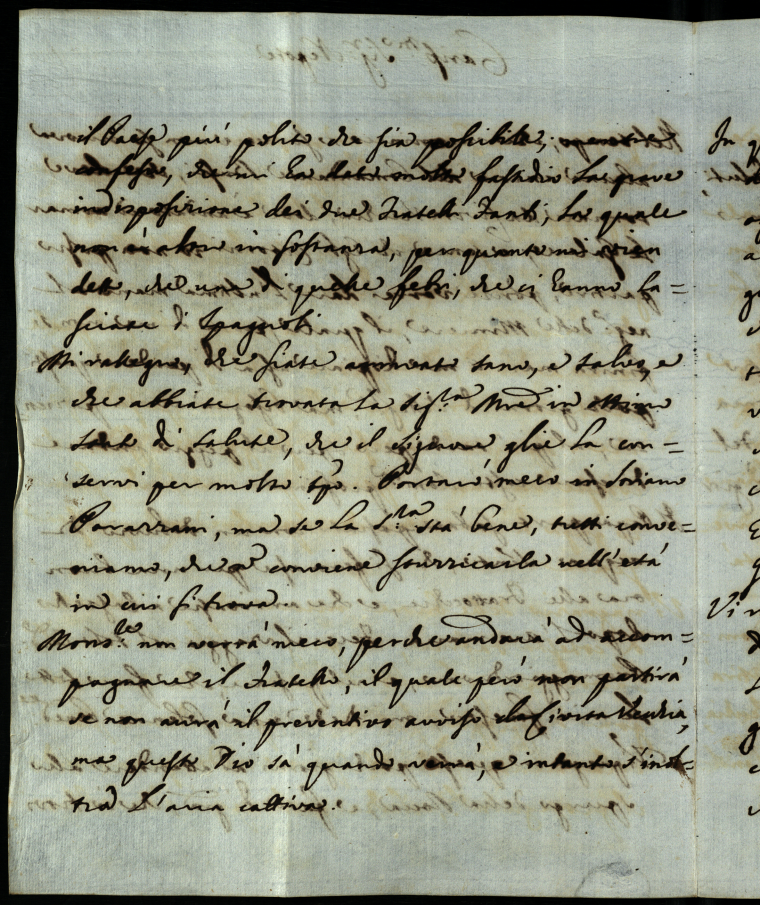 il Paese più polito che sia possibile; mentre
confesso, che mi ha dato molto fastidio la grave
indisposizione dei due Fratelli Fanti; la quale
non è altro in sostanza, per quanto mi vien
detto, che una di quelle febri, che ci hanno la=
sciate i Spagnoli.
Mi rallegro, che siate arrivato sano, e salvo, e
che abbiate trovata la Sig.ra Mre in ottimo
stato di salute, che il Signore glie la con=
servi per molto tpo. Portarò meco in Soriano
Parazzani, ma se la S.ra stà bene, tutti conve=
niamo, che conviene sturzicarla nell'età
in cui si trova.
Mons.re non verrà meco, perche andarà ad accom=
pagnare il Fratello, il quale però non partirà
se non avrà il preventivo avviso da Civita Vecchia,
ma questo Dio sà quando verrà, e intanto s'inol=
tra L'aria cattiva.
In
Vi